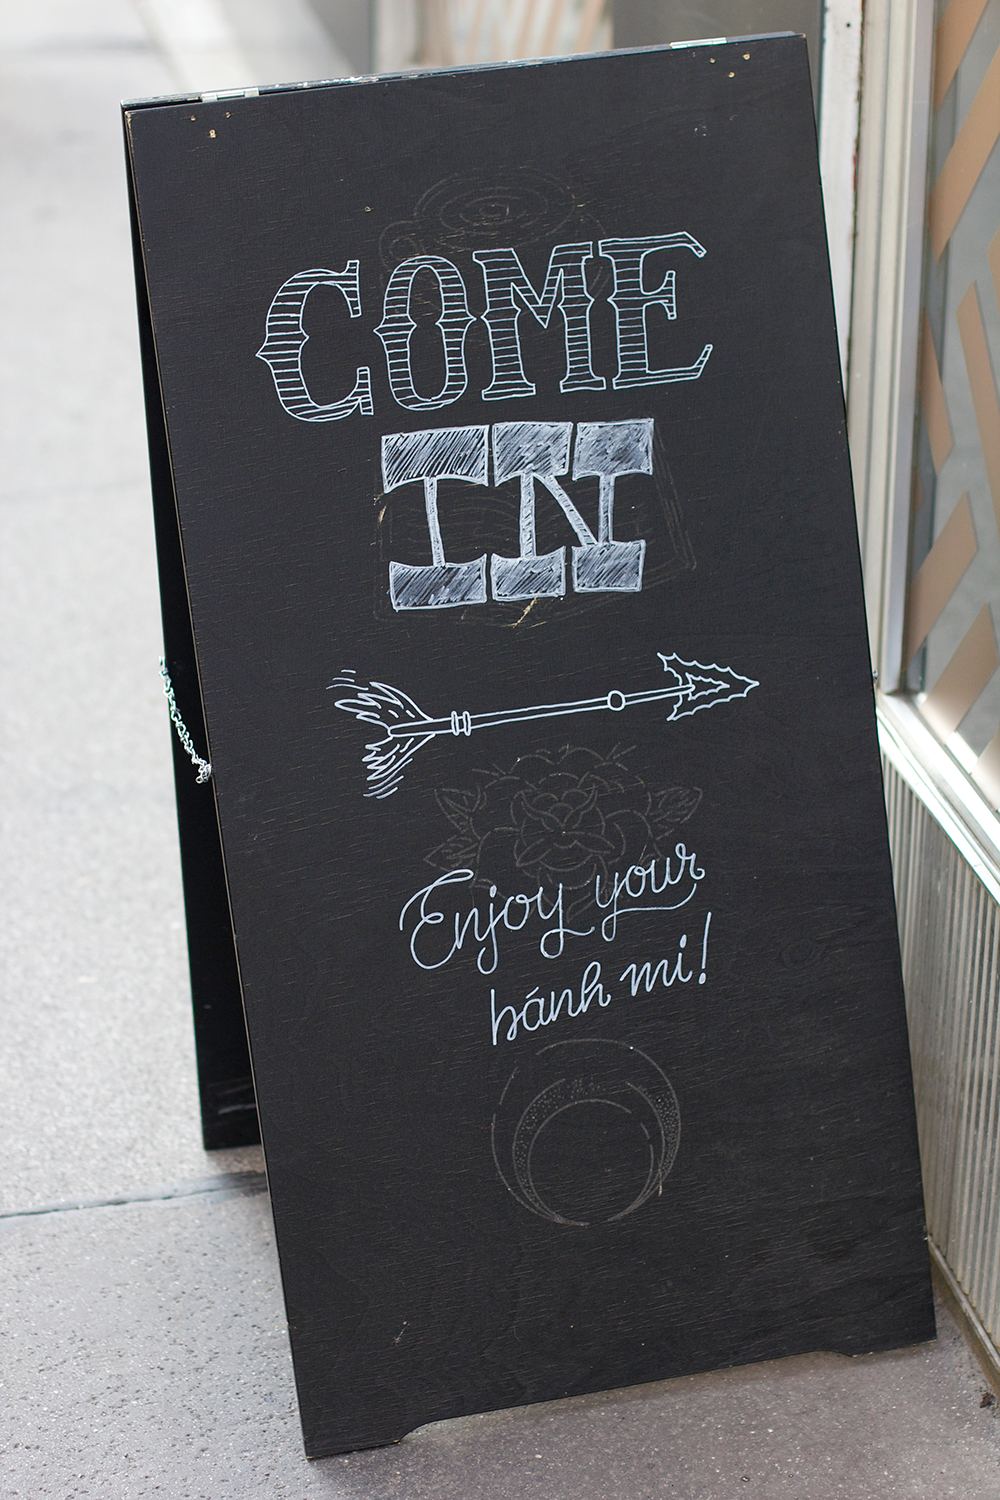 COME
IN
Enjoy your
bánh mi!